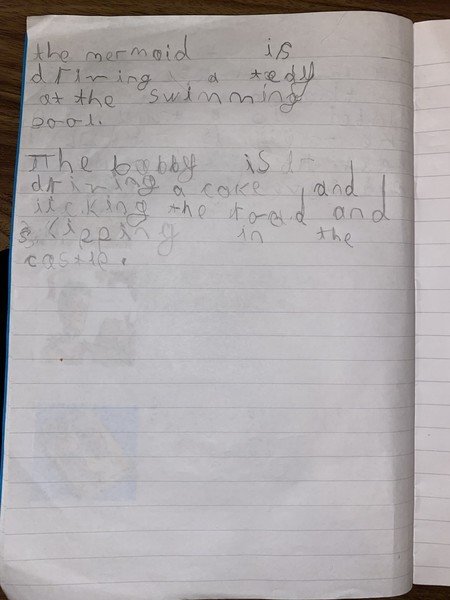 the mermaid is
driving a tedy
at the swimming
pool.
The babby is
driving a cake and
licking the toad and
skipping in the
castle.